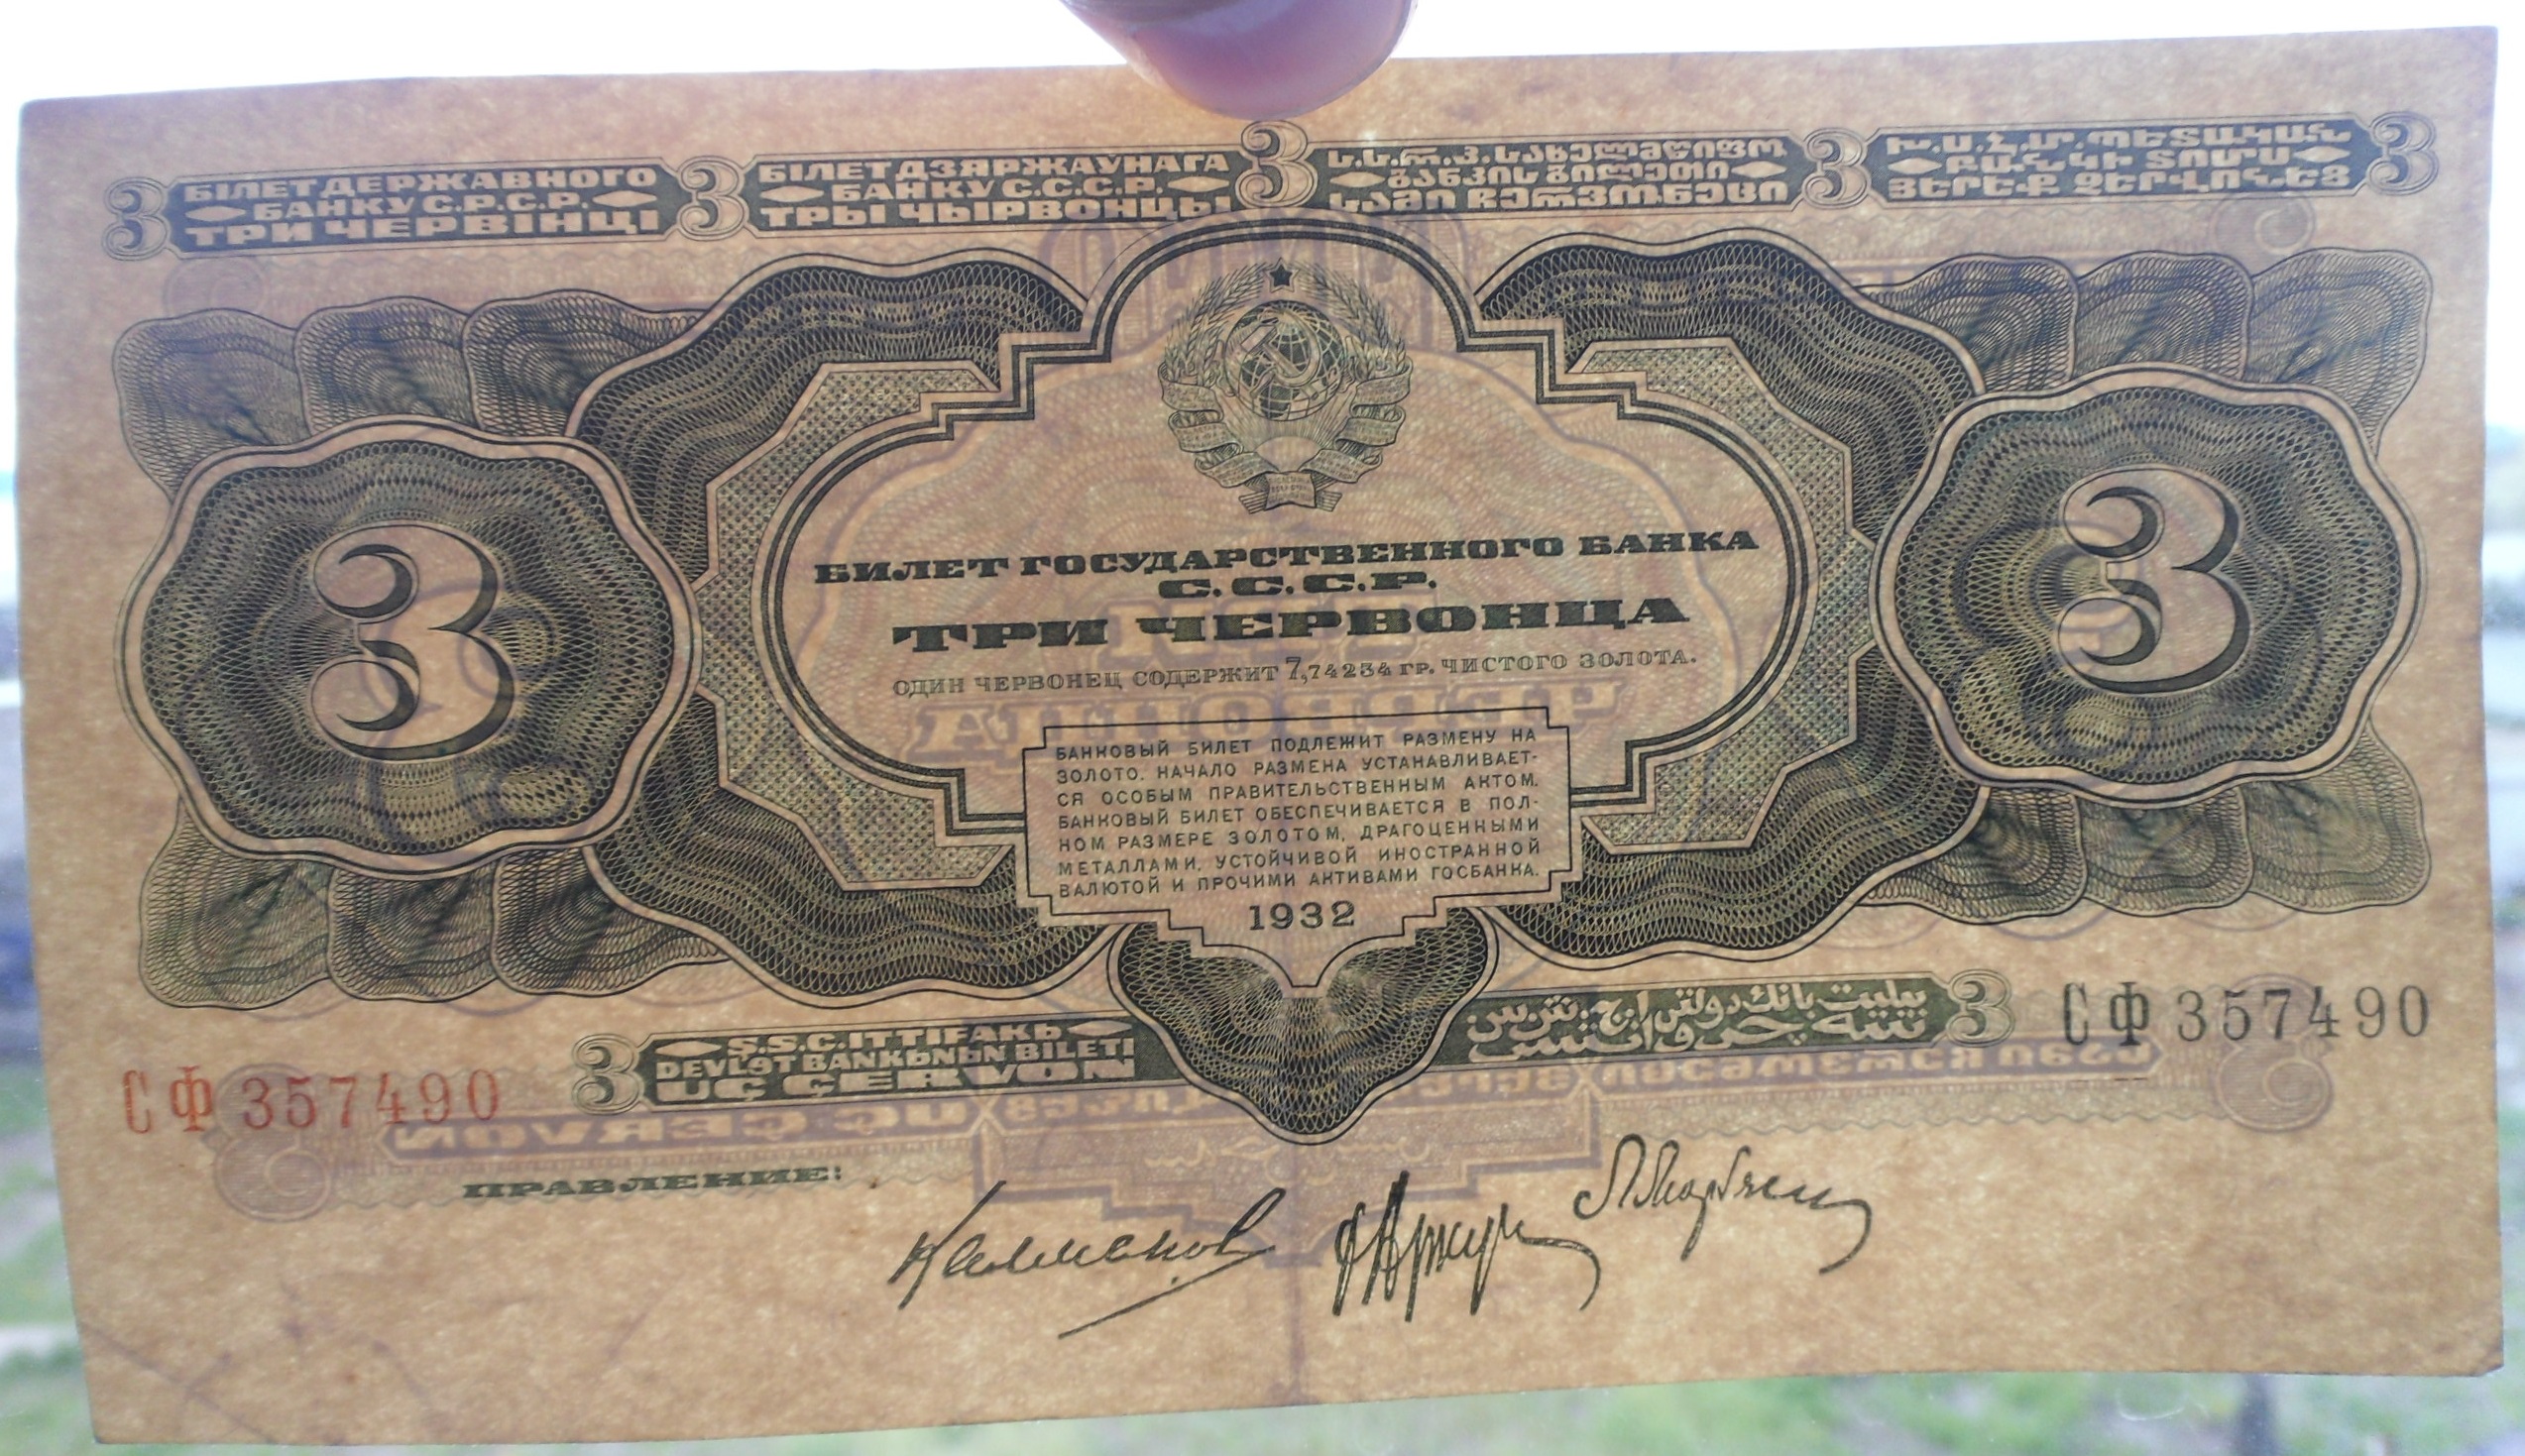 3
БІЛЕТ ДЕРЖАВНОГО
БАНКУ С.Р.С.Р.
ТРИ ЧЕРВІНЦІ
3
БІЛЕТ ДЗЯРЖАЎНАГА
БАНКУ С.С.С.Р.
ТРЫ ЧЫРВОНЦЫ
3
ს.ს.რ.კ. სახელმწიფო
ბანკის ბილეთი
სამი ჩერვონეცი
3
Խ.Ս.Հ.Մ. ՊԵՏԱԿԱՆ
ԲԱՆԿԻ ՏՈՄՍ
ՅԵՐԵՔ ՉԵՐՎՈՆԵՑ
3
3
БИЛЕТ ГОСУДАРСТВЕННОГО БАНКА
С.С.С.Р.
ТРИ ЧЕРВОНЦА
ОДИН ЧЕРВОНЕЦ СОДЕРЖИТ 7,74234 ГР. ЧИСТОГО ЗОЛОТА.
3
БАНКОВЫЙ БИЛЕТ ПОДЛЕЖИТ РАЗМЕНУ НА
ЗОЛОТО. НАЧАЛО РАЗМЕНА УСТАНАВЛИВАЕТ-
СЯ ОСОБЫМ ПРАВИТЕЛЬСТВЕННЫМ АКТОМ.
БАНКОВЫЙ БИЛЕТ ОБЕСПЕЧИВАЕТСЯ В ПОЛ-
НОМ РАЗМЕРЕ ЗОЛОТОМ, ДРАГОЦЕННЫМИ
МЕТАЛЛАМИ, УСТОЙЧИВОЙ ИНОСТРАННОЙ
ВАЛЮТОЙ И ПРОЧИМИ АКТИВАМИ ГОСБАНКА.
1932
СФ 357490
3
Ş.S.C. ITTIFAKЬ
DEVLƏT BANKЬNЬN BILETI
UÇ ÇERVON
3
СФ 357490
ПРАВЛЕНИЕ:
Калманов